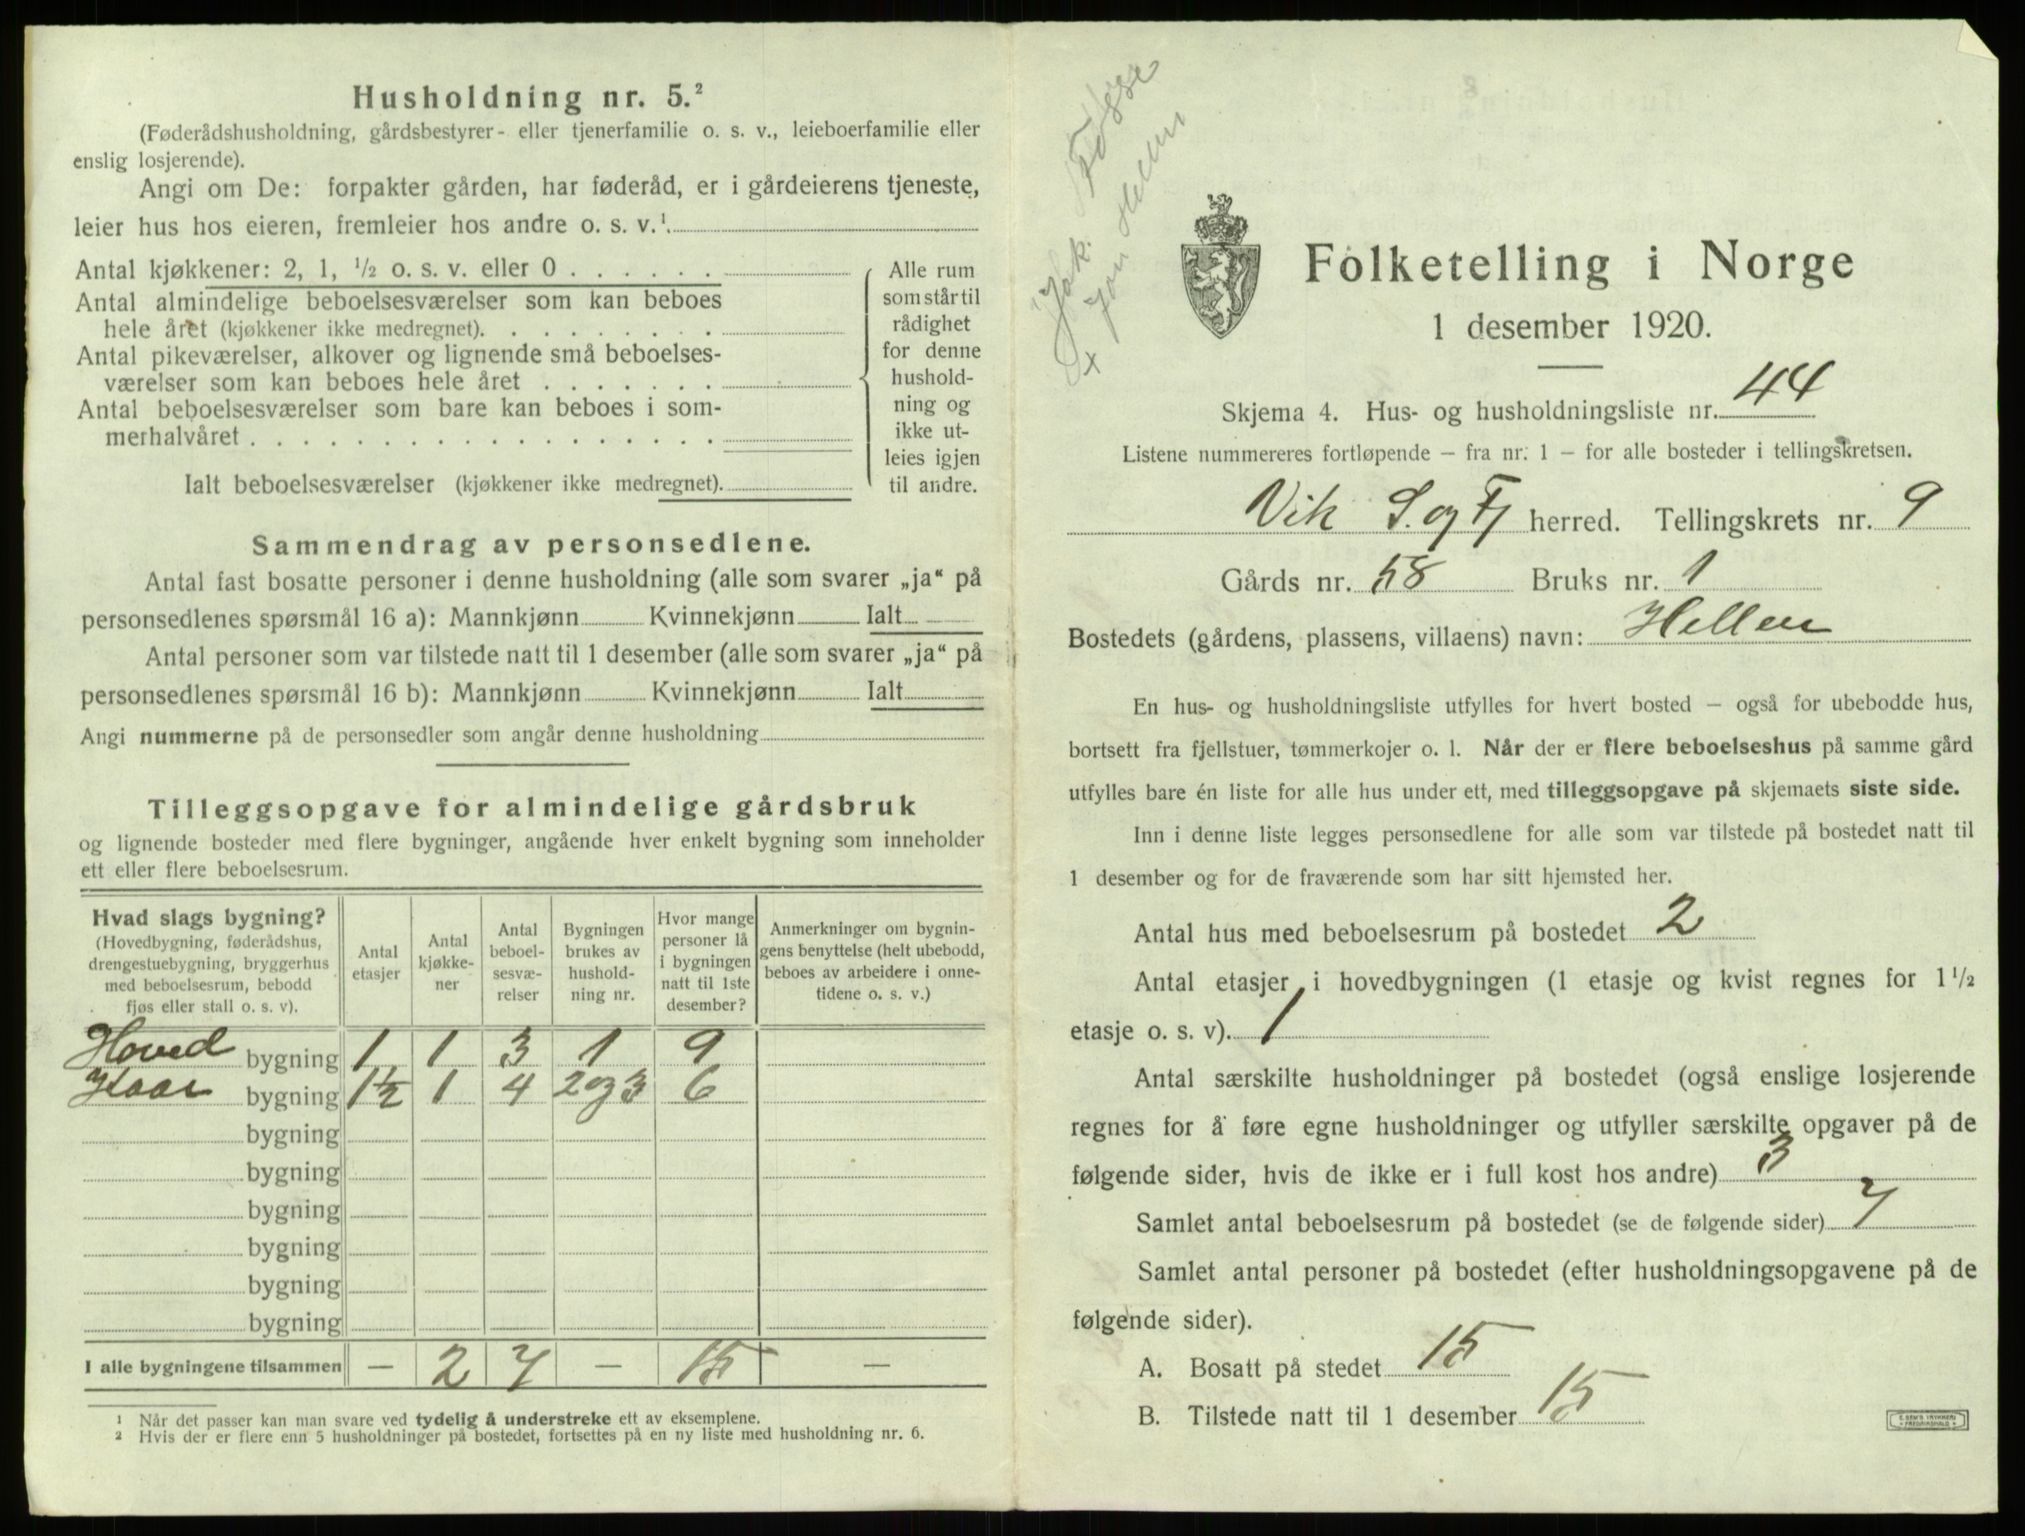 Husholdning nr. 5.²
(Føderådshusholdning, gårdsbestyrer- eller tjenerfamilie o. s. v., leieboerfamilie eller
enslig losjerende).
Angi om De: forpakter gården, har føderåd, er i gårdeierens tjeneste,
leier hus hos eieren, fremleier hos andre o. s. v.¹
Antal kjøkkener: 2, 1, ½ o. s. v. eller 0 . . . . . .
Antal almindelige beboelsesværelser som kan beboes
hele året (kjøkkener ikke medregnet). . . . . . . . .
Antal pikeværelser, alkover og lignende små beboelses-
værelser som kan beboes hele året . . . . . . .
Antal beboelsesværelser som bare kan beboes i som-
merhalvåret . . . . . . . . . . . . . . . . . .
Ialt beboelsesværelser (kjøkkener ikke medregnet).
Alle rum
som står til
rådighet
for denne
hushold-
ning og
ikke ut-
leies igjen
til andre.
Sammendrag av personsedlene.
Antal fast bosatte personer i denne husholdning (alle som svarer „ja“ på
personsedlenes spørsmål 16 a): Mannkjønn Kvinnekjønn Ialt
Antal personer som var tilstede natt til 1 desember (alle som svarer „ja“ på
personsedlenes spørsmål 16 b): Mannkjønn Kvinnekjønn Ialt
Angi nummerne på de personsedler som angår denne husholdning
Tilleggsopgave for almindelige gårdsbruk
og lignende bosteder med flere bygninger, angående hver enkelt bygning som inneholder
ett eller flere beboelsesrum.
Hvad slags bygning?
(Hovedbygning, føderådshus,
drengestuebygning, bryggerhus
med beboelsesrum, bebodd
fjøs eller stall o. s. v).
Antal
etasjer
Antal
kjøkke-
ner
Antal
beboel-
sesvæ-
relser
Bygningen
brukes av
hushold-
ning nr.
Hvor mange
personer lå
i bygningen
natt til 1ste
desember?
Anmerkninger om bygnin-
gens benyttelse (helt ubebodd,
beboes av arbeidere i onne-
tidene o. s. v.)
Hoved bygning 1 1 3 1 9
Kaar bygning 1½ 1 4 2 og 3 6
bygning
bygning
bygning
bygning
bygning
bygning
I alle bygningene tilsammen — 2 7 — 15 —
¹ Når det passer kan man svare ved tydelig å understreke ett av eksemplene.
² Hvis der er flere enn 5 husholdninger på bostedet, fortsettes på en ny liste med husholdning nr. 6.
Jak.
Jon Hellen
x
Folketelling i Norge
1 desember 1920.
Skjema 4. Hus- og husholdningsliste nr. 44
Listene nummereres fortløpende — fra nr. 1 — for alle bosteder i tellingskretsen.
Vik S. og Fj herred. Tellingskrets nr. 9
Gårds nr. 58 Bruks nr. 1
Bostedets (gårdens, plassens, villaens) navn: Hellen
En hus- og husholdningsliste utfylles for hvert bosted — også for ubebodde hus,
bortsett fra fjellstuer, tømmerkojer o. l. Når der er flere beboelseshus på samme gård
utfylles bare én liste for alle hus under ett, med tilleggsopgave på skjemaets siste side.
Inn i denne liste legges personsedlene for alle som var tilstede på bostedet natt til
1 desember og for de fraværende som har sitt hjemsted her.
Antal hus med beboelsesrum på bostedet 2
Antal etasjer i hovedbygningen (1 etasje og kvist regnes for 1 ½
etasje o. s. v). 1
Antal særskilte husholdninger på bostedet (også enslige losjerende
regnes for å føre egne husholdninger og utfyller særskilte opgaver på de
følgende sider, hvis de ikke er i full kost hos andre) 3
Samlet antal beboelsesrum på bostedet (se de følgende sider) 7
Samlet antal personer på bostedet (efter husholdningsopgavene på de
følgende sider).
A. Bosatt på stedet 15
B. Tilstede natt til 1 desember 15
E. SEM'S TRYKKERI
FREDRIKSHALD